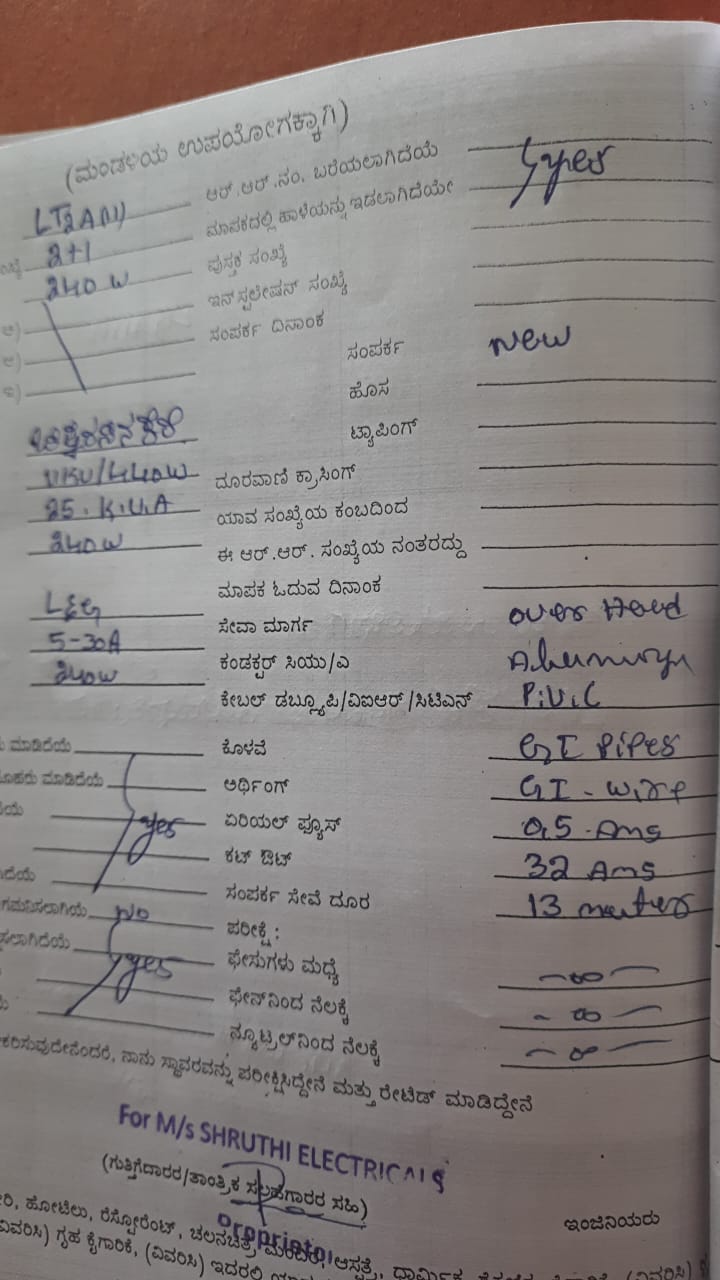 (ಮಂಡಳಿಯ ಉಪಯೋಗಕ್ಕಾಗಿ)
LT2A(11) ಆರ್.ಆರ್.ನಂ. ಬರೆಯಲಾಗಿದೆಯೆ yes
2+1 ಮಾಪಕದಲ್ಲಿ ಹಾಳೆಯನ್ನು ಇಡಲಾಗಿದೆಯೇ
240 W ಪುಸ್ತಕ ಸಂಖ್ಯೆ
ಇನ್‌ಸ್ಟಲೇಷನ್ ಸಂಖ್ಯೆ
ಸಂಪರ್ಕ ದಿನಾಂಕ
ಸಂಪರ್ಕ New
ಹೊಸ
ಟ್ಯಾಪಿಂಗ್
11KV/440W ದೂರವಾಣಿ ಕ್ರಾಸಿಂಗ್
25. K.V.A ಯಾವ ಸಂಖ್ಯೆಯ ಕಂಬದಿಂದ
240W ಈ ಆರ್.ಆರ್. ಸಂಖ್ಯೆಯ ನಂತರದ್ದು
ಮಾಪಕ ಓದುವ ದಿನಾಂಕ
L&G ಸೇವಾ ಮಾರ್ಗ over Head
5-30A ಕಂಡಕ್ಟರ್ ಸಿಯು/ಎ
240W ಕೇಬಲ್ ಡಬ್ಲ್ಯೂಪಿ/ವಿಐಆರ್/ಸಿಟಿಎನ್ P.V.C
ಮಾಡಿದೆಯೆ ಕೊಳವೆ GI Pipes
ಮಾಡಿದೆಯೆ ಅರ್ಥಿಂಗ್ GI - wire
yes ಏರಿಯಲ್ ಫ್ಯೂಸ್ 0.5 - Ams
ಕಟ್ ಔಟ್ 32 Ams
ಸಂಪರ್ಕ ಸೇವೆ ದೂರ 13 meters
No ಪರೀಕ್ಷೆ :
yes ಫೇಸುಗಳು ಮಧ್ಯೆ - ∞ -
ಫೇಸ್‌ನಿಂದ ನೆಲಕ್ಕೆ - ∞ -
ನ್ಯೂಟ್ರಲ್‌ನಿಂದ ನೆಲಕ್ಕೆ - ∞ -
ನಾನು ಸ್ಥಾವರವನ್ನು ಪರೀಕ್ಷಿಸಿದ್ದೇನೆ ಮತ್ತು ರೇಟೆಡ್ ಮಾಡಿದ್ದೇನೆ
For M/s SHRUTHI ELECTRICALS
(ಗುತ್ತಿಗೆದಾರರ/ತಾಂತ್ರಿಕ ಸಲಹೆಗಾರರ ಸಹಿ)
Proprietor
ಇಂಜಿನಿಯರು
ಹೋಟೆಲು, ರೆಸ್ಟೋರೆಂಟ್, ಚಲನಚಿತ್ರ ಮಂದಿರ, ಆಸ್ಪತ್ರೆ, ಧಾರ್ಮಿಕ
ಗೃಹ ಕೈಗಾರಿಕೆ, (ವಿವರಿಸಿ) ಇದರಲ್ಲಿ